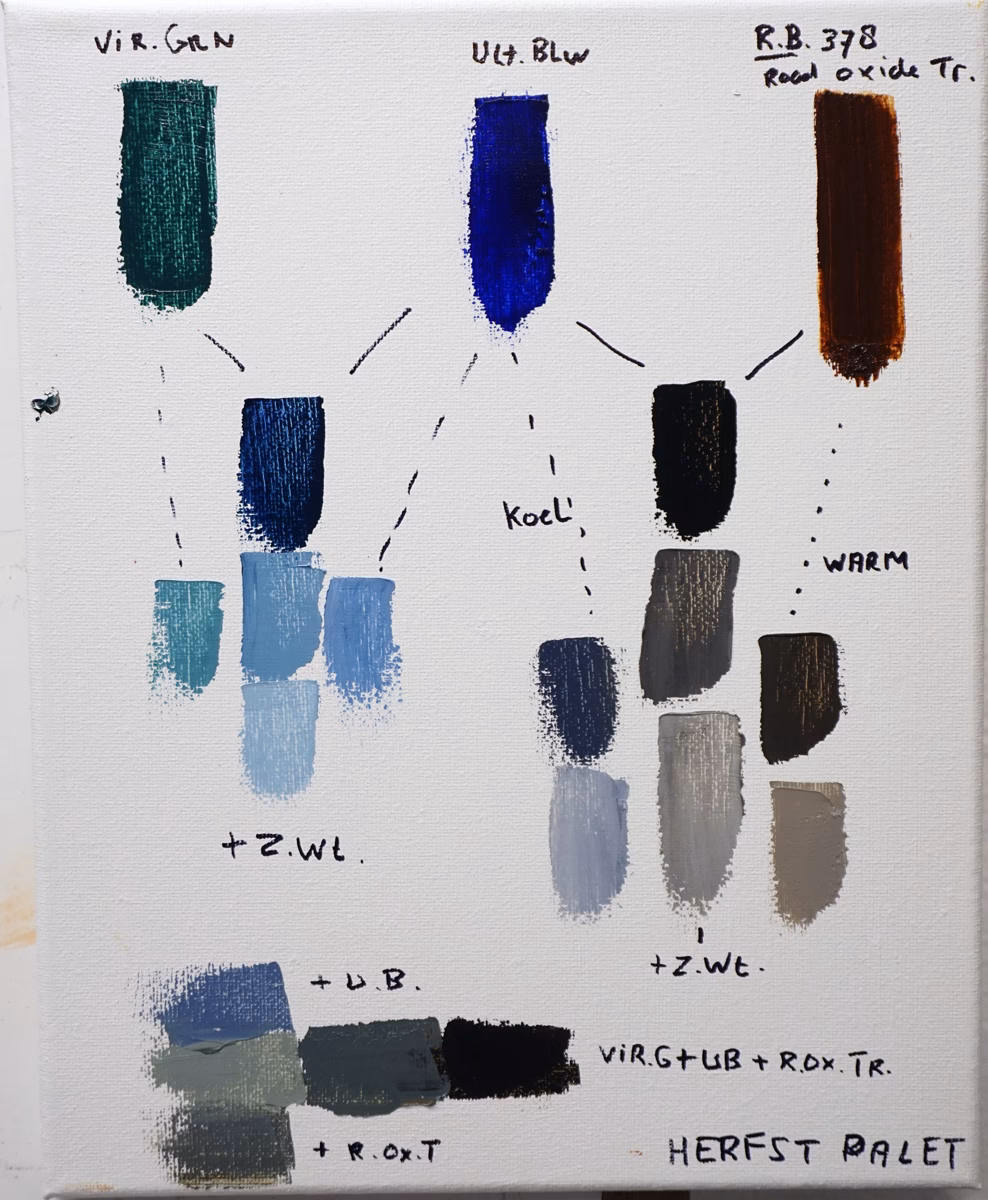 ViR. GRN
Ult. BLW
R.B. 378
Rood oxide Tr.
KOEL
WARM
+ Z.Wt.
+Z.Wt.
+ U.B.
ViR.G+UB + R.Ox.TR.
+ R.Ox.T
HERFST PALET